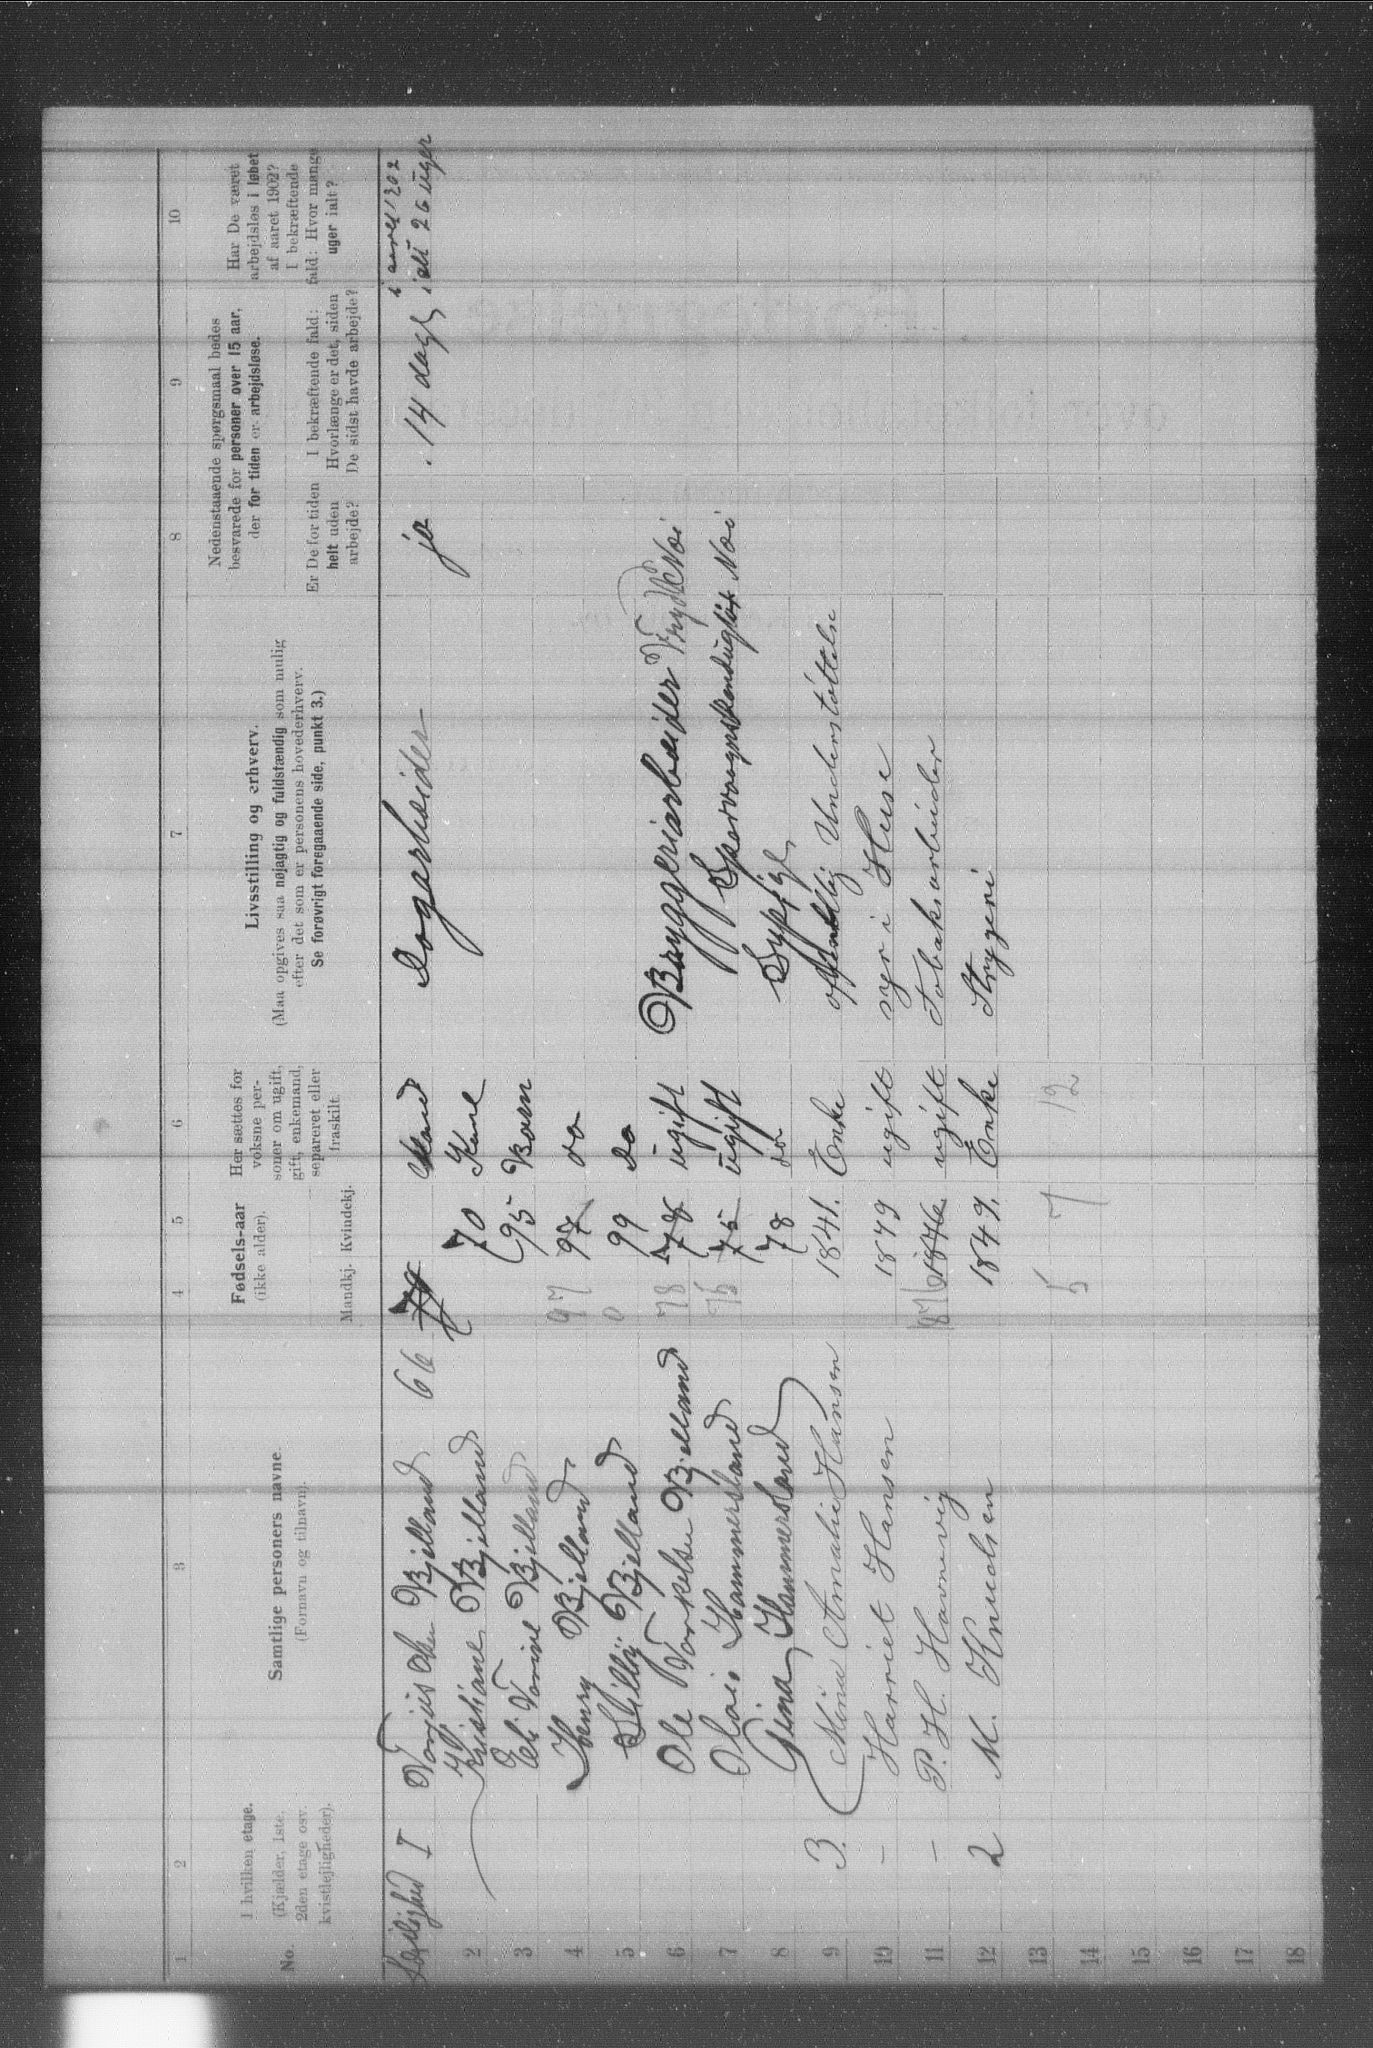 1 2 3 4 5 6 7 8 9 10
No.
I hvilken etage.
(Kjælder, 1ste,
2den etage osv.
kvistlejligheder).
Samtlige personers navne.
(Fornavn og tilnavn).
Fødsels-aar
(ikke alder).
Mandkj. Kvindekj.
Her sættes for
voksne per-
soner om ugift,
gift, enkemand,
separeret eller
fraskilt.
Livsstilling og erhverv.
(Maa opgives saa nøjagtig og fuldstændig som mulig
efter det som er personens hovederhverv.
Se forøvrigt foregaaende side, punkt 3.)
Nedenstaaende spørgsmaal bedes
besvarede for personer over 15 aar,
der for tiden er arbejdsløse.
Er De for tiden
helt uden
arbejde?
I bekræftende fald:
Hvorlænge er det, siden
De sidst havde arbejde?
Har De været
arbejdsløs i løbet
af aaret 1902?
I bekræftende
fald: Hvor mange
uger ialt?
Leilighed I Bjelland 66 Mand Dagarbeider ja 14 dage i aaret 1902
ialt 26 uger
2 Kristiane Bjelland 70 Kone
3 Eli Bjelland 95 Barn
4 Henry Bjelland 97 97 do
5 Bjelland 0 99 do
6 Ole Torkelsen Bjelland 78 78 ugift Bryggeriarbeider Nei
7 Olai Hammersland 75 75 ugift Nei
8 Gina Hammersland 78 do Sypige
9 3. Mina Amalie Hansen 1841. Enke offentlig Understøttelse
10 - Harriet Hansen 1879 ugift syr i Huse
11 - P. H. Havnevig 1876 1876 ugift Tobaksarbeider
12 2 M. Knudsen 1849. Enke Strygeri
13
14 5 7 12
15
16
17
18